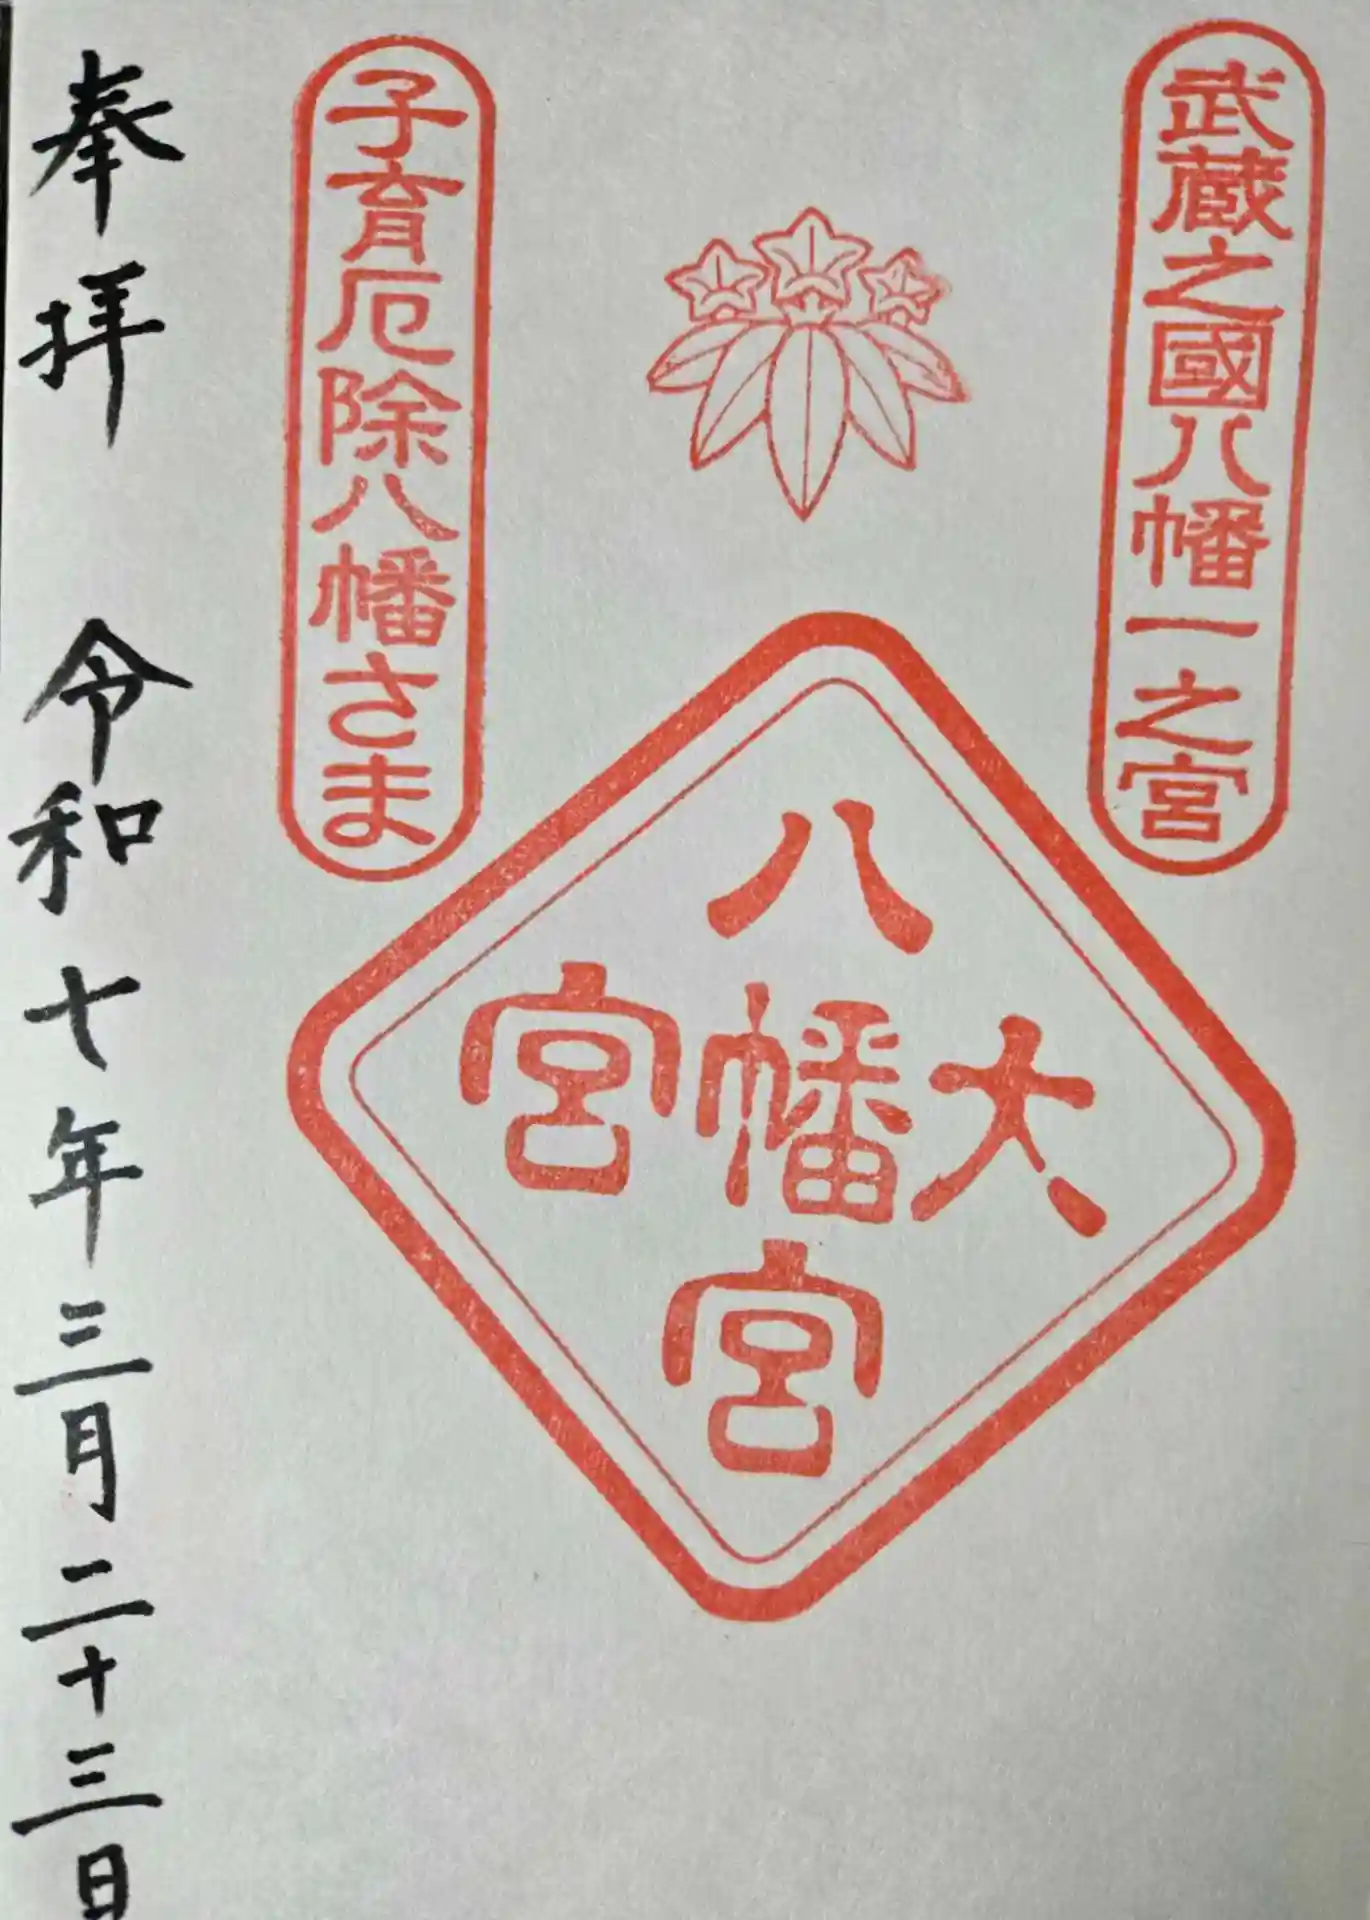 武蔵之國八幡一之宮
大宮八幡宮
子育厄除八幡さま
奉拝 令和七年三月二十三日